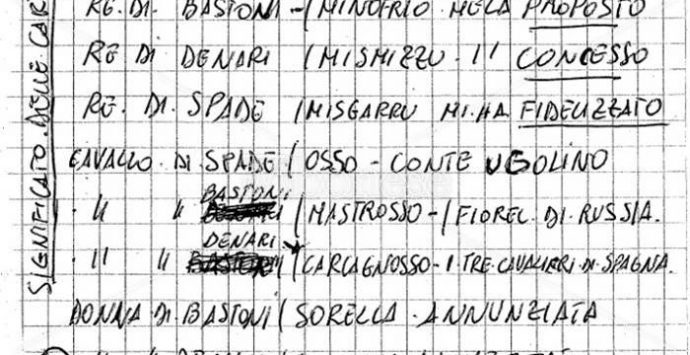 SIGNIFICATO DELLE CAR
RE. DI. BASTONI - (MINOFRIO MELA PROPOSTO
RE DI DENARI (MISMIZZU. I' CONCESSO
RE. DI. SPADE (MISGARRU MI. HA FIDELIZZATO
CAVALLO. DI. SPADE / OSSO - CONTE UGOLINO
" " BASTONI / MASTROSSO - / FIOREL. DI. RUSSIA.
" " DENARI / CARCAGNOSSO - I. TRE. CAVALIERI. DI. SPAGNA.
DONNA DI. BASTONI / SORELLA. ANNUNZIATA